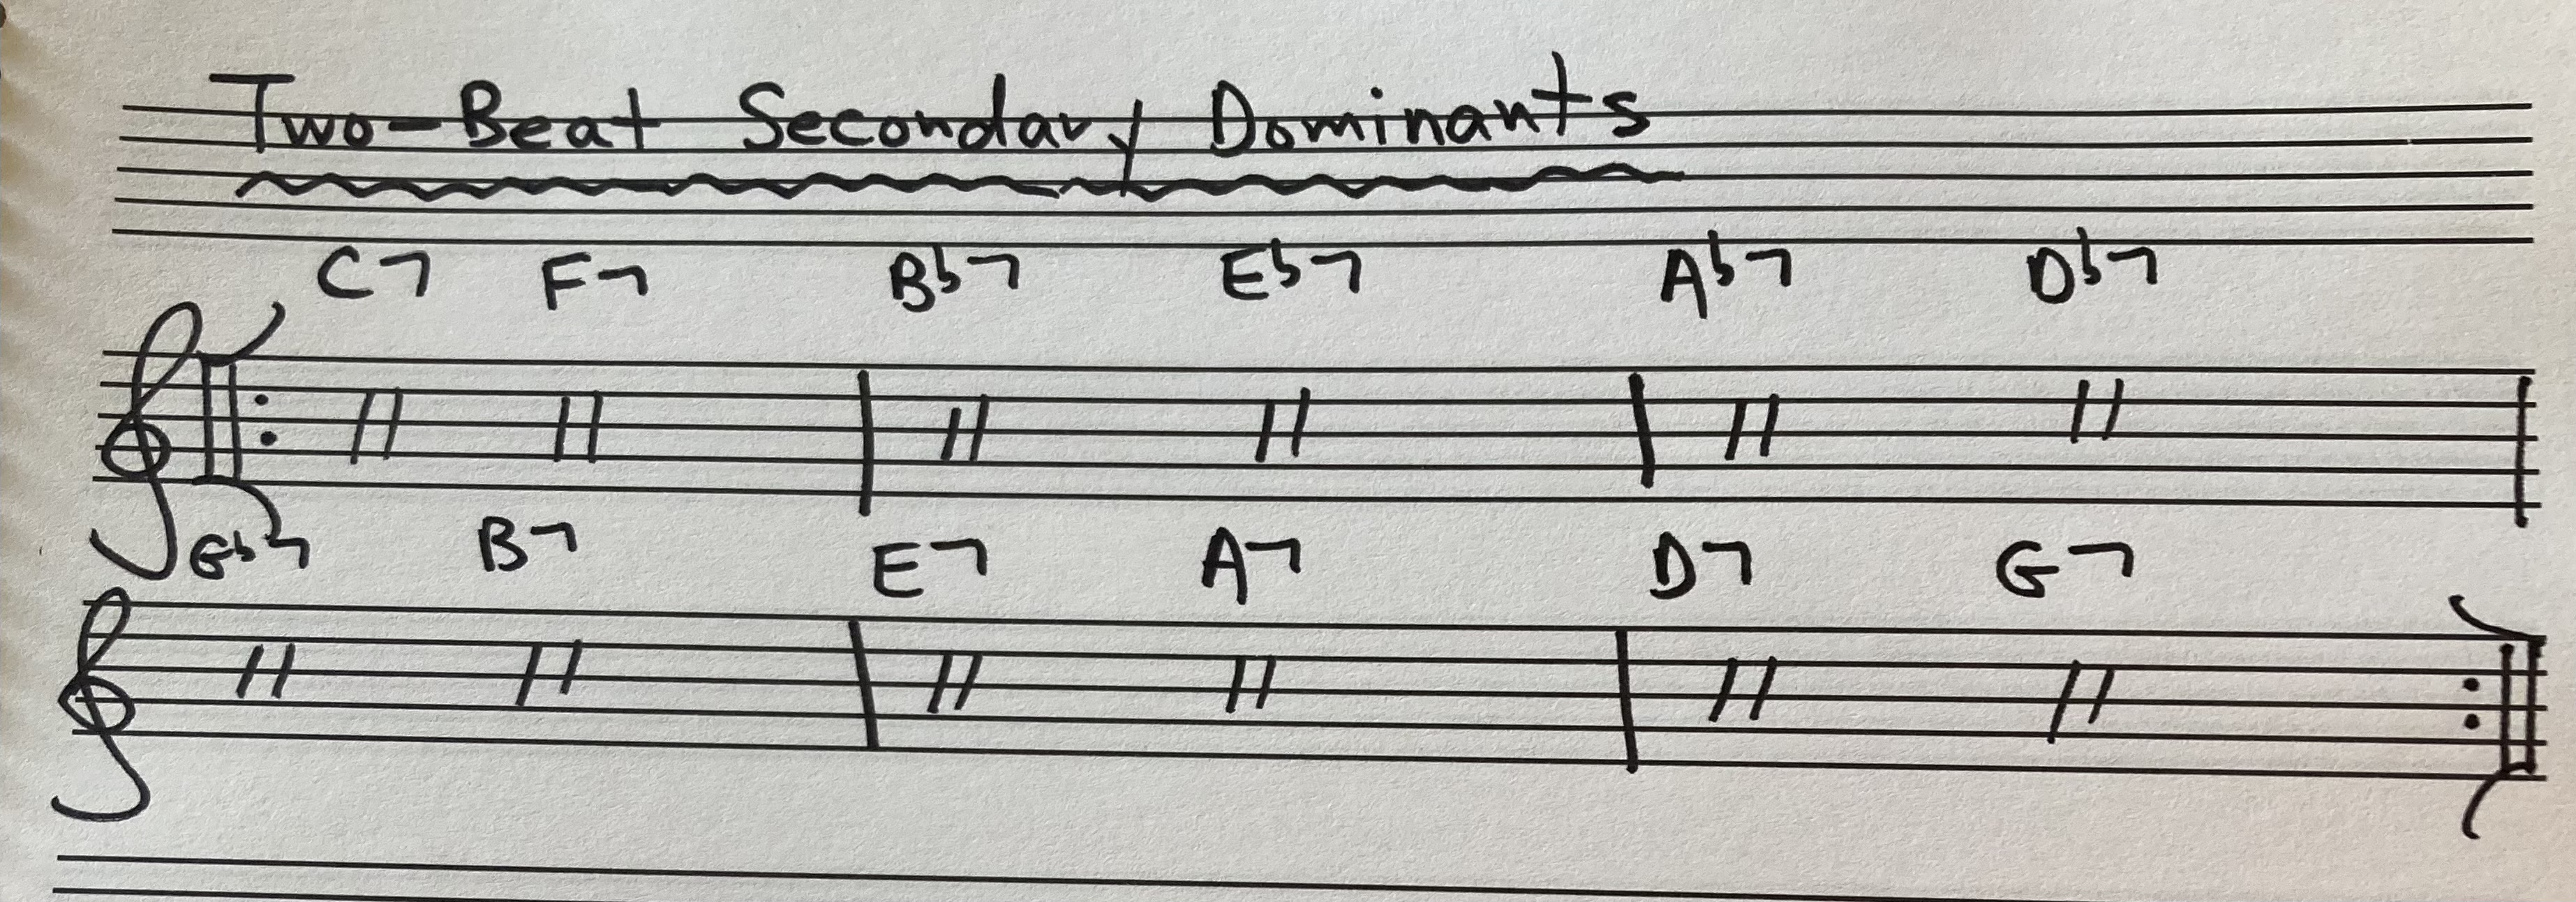 Two-Beat Secondary Dominants
C7 F7 Bb7 Eb7 Ab7 Db7
Gb7 B7 E7 A7 D7 G7